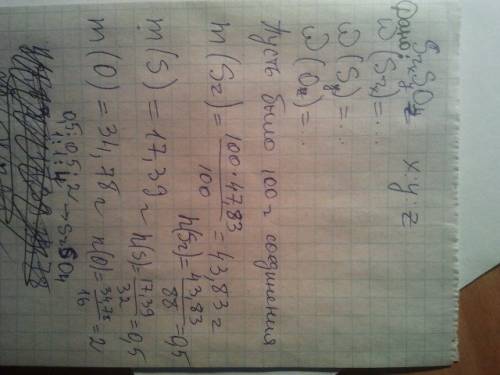 Дано: SrₓSᵧO_z x:y:z
ω(Srₓ)=...
ω(Sᵧ)=...
ω(O_z)=...
Пусть было 100 г соединения
m(Sr) = 100·47,83 / 100 = 43,83 г
n(Sr) = 43,83 / 88 = 0,5
m(S) = 17,39 г n(S) = 17,39 / 32 = 0,5
m(O) = 34,78 г n(O) = 34,78 / 16 = 2
0,5:0,5:2 → SrSO₄